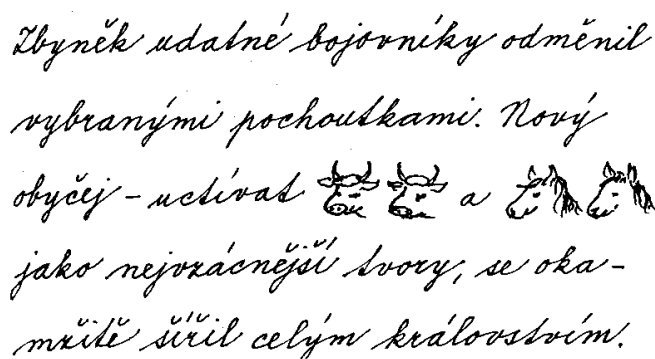 Zbyněk udatné bojovníky odměnil
vybranými pochoutkami. Nový
obyčej – uctívat a
jako nejvzácnější tvory, se oka-
mžitě šířil celým královstvím.